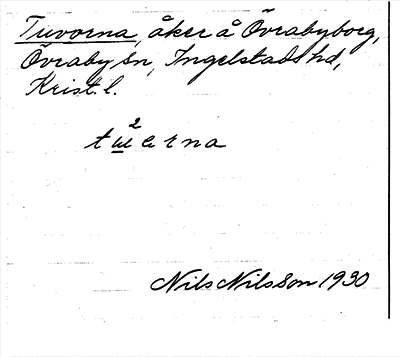 Tuvorna, åker å Övrabyborg,
Övraby sn, Ingelstads hd,
Krist. l.
2
tɯerna
Nils Nilsson 1930